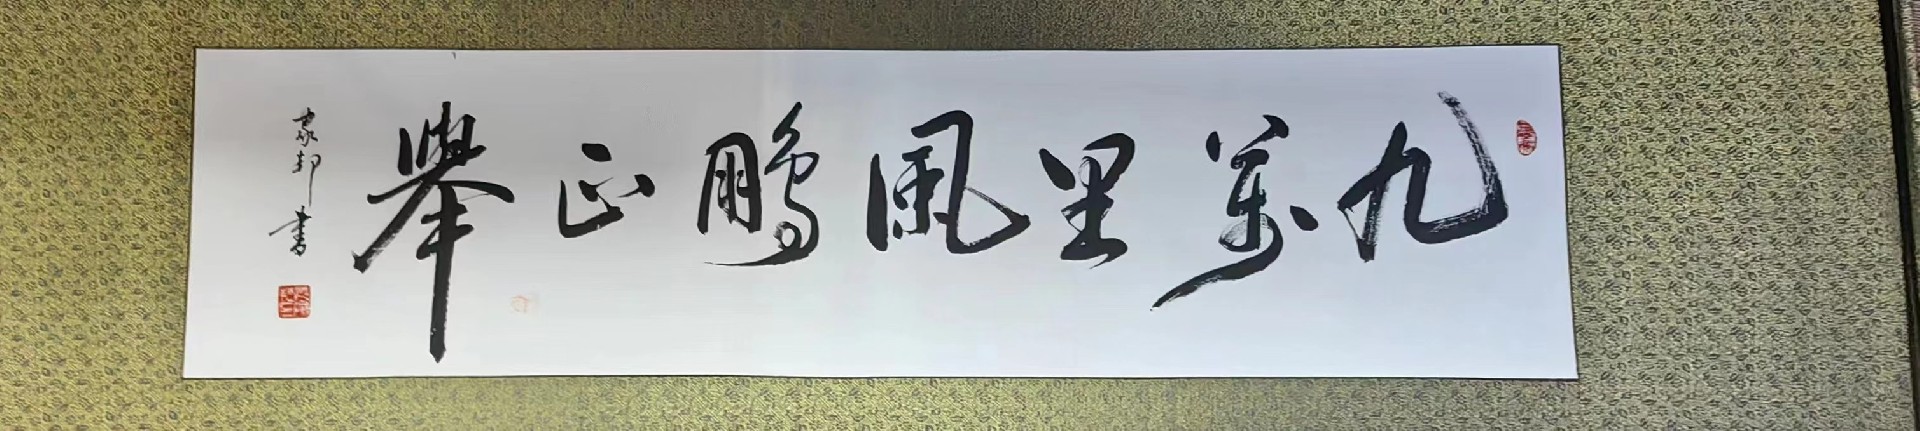 九萬里風鵬正舉
家邦書